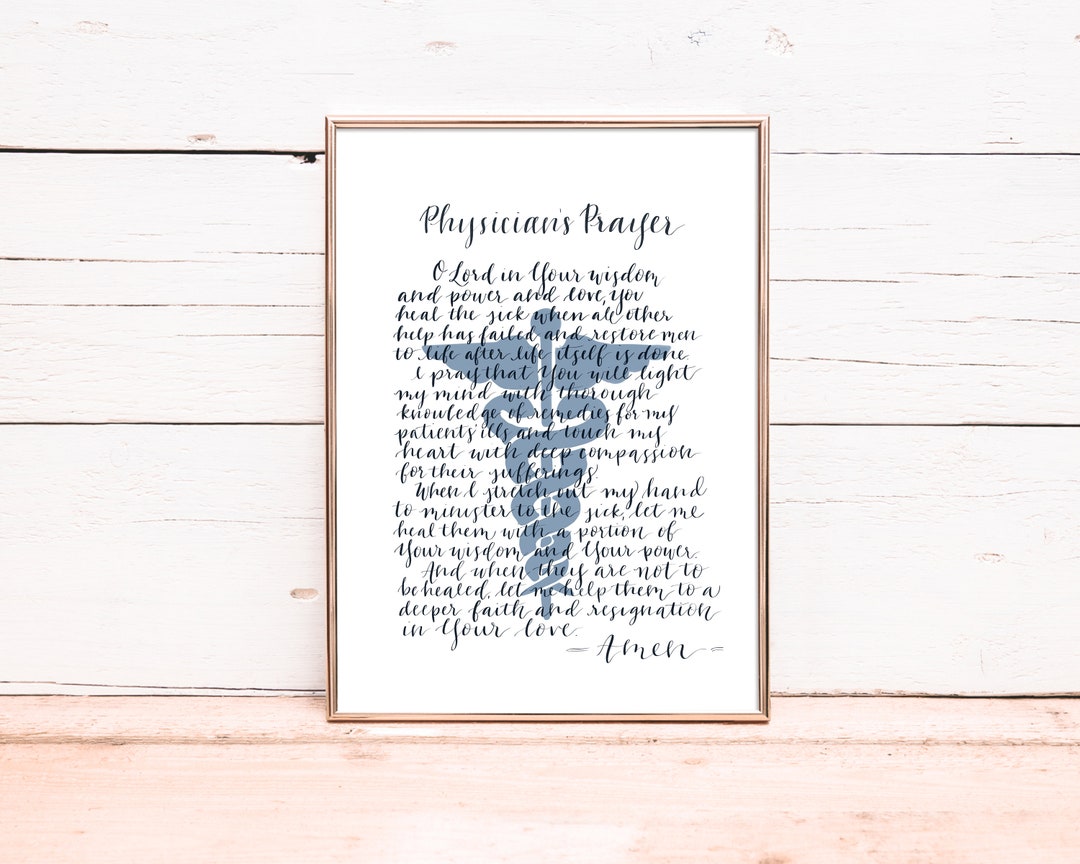 Physician's Prayer
O Lord in Your wisdom
and power and love, you
heal the sick when all other
help has failed and restore men
to life after life itself is done.
I pray that You will light
my mind with thorough
knowledge of remedies for my
patients' ills and touch my
heart with deep compassion
for their sufferings.
When I stretch out my hand
to minister to the sick, let me
heal them with a portion of
Your wisdom and Your power.
And when they are not to
be healed, let me help them to a
deeper faith and resignation
in Your love.
= Amen =